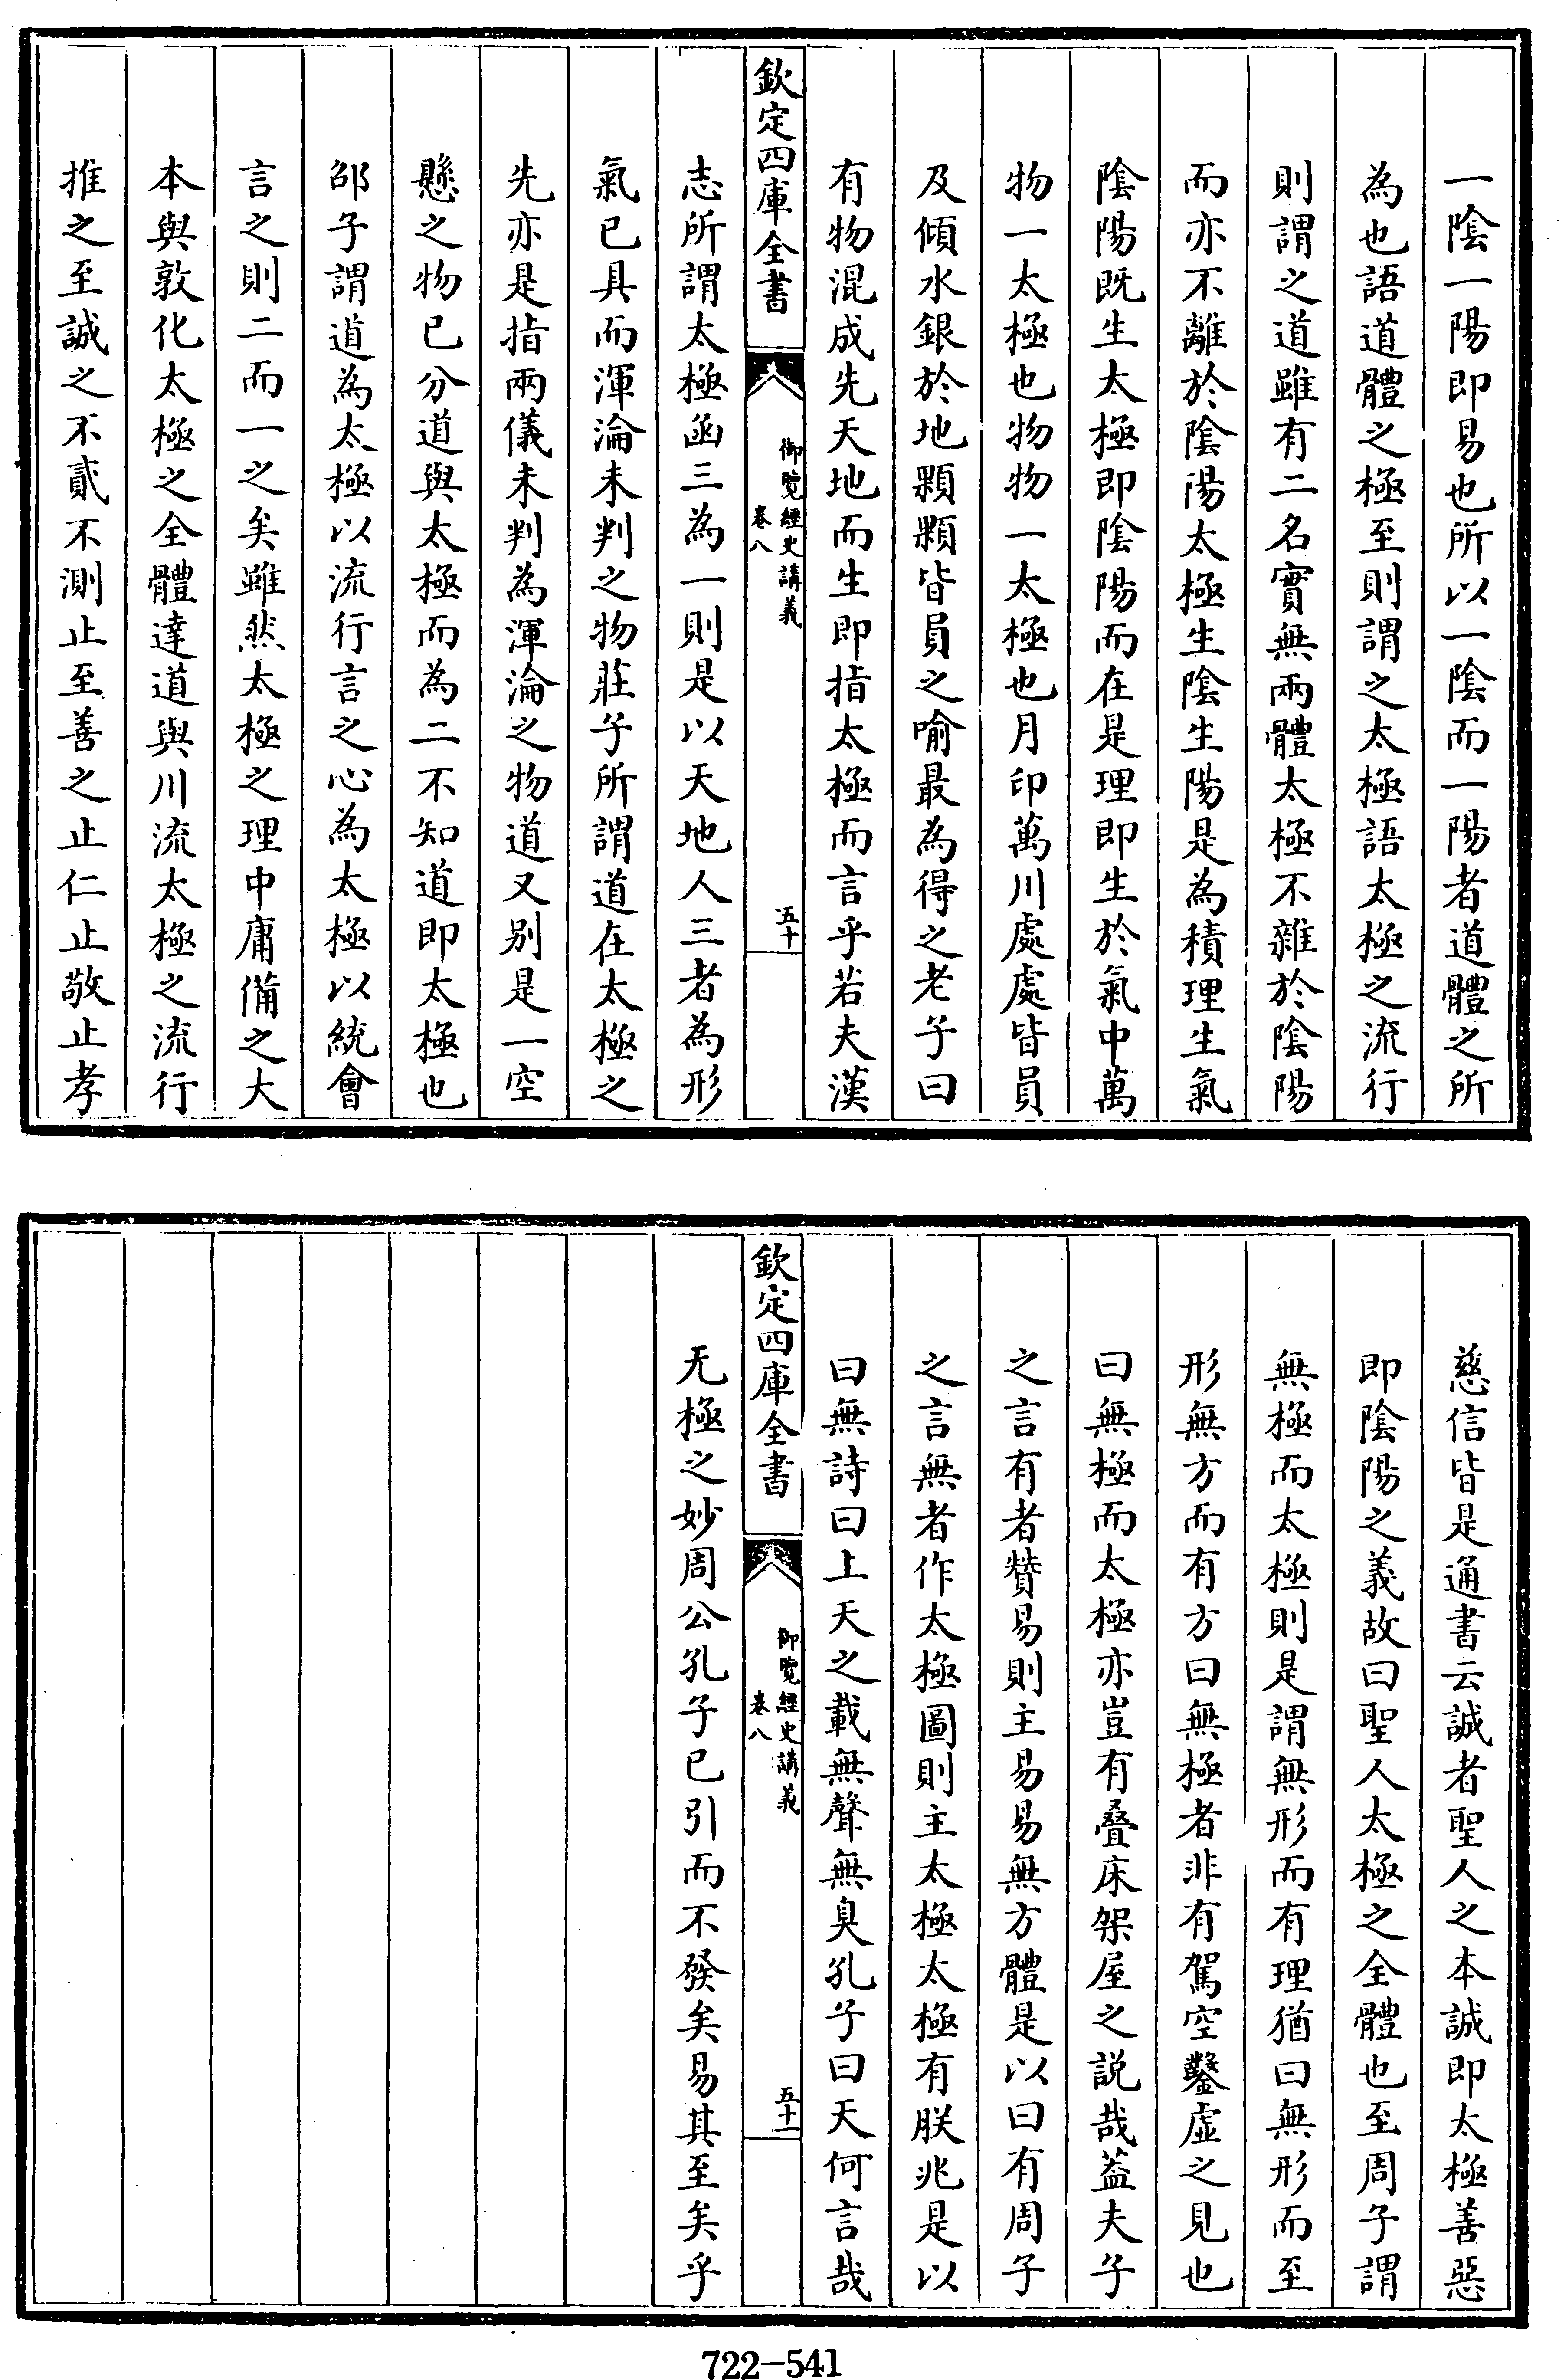 一陰一陽即易也所以一陰而一陽者道體之所
為也語道體之極至則謂之太極語太極之流行
則謂之道雖有二名實無兩體太極不雜於陰陽
而亦不離於陰陽太極生陰生陽是為積理生氣
陰陽既生太極即陰陽而在是理即生於氣中萬
物一太極也物物一太極也月印萬川處處皆員
及傾水銀於地顆顆皆員之喻最為得之老子曰
有物混成先天地而生即指太極而言乎若夫漢
欽定四庫全書
御覽經史講義
卷八
五十
志所謂太極函三為一則是以天地人三者為形
氣已具而渾淪未判之物莊子所謂道在太極之
先亦是指兩儀未判為渾淪之物道又別是一空
懸之物已分道與太極而為二不知道即太極也
邵子謂道為太極以流行言之心為太極以統會
言之則二而一之矣雖然太極之理中庸備之大
本與敦化太極之全體達道與川流太極之流行
推之至誠之不貳不測止至善之止仁止敬止孝
慈信皆是通書云誠者聖人之本誠即太極善惡
即陰陽之義故曰聖人太極之全體也至周子謂
無極而太極則是謂無形而有理猶曰無形而至
形無方而有方曰無極者非有駕空鑿虛之見也
曰無極而太極亦豈有疊床架屋之説哉蓋夫子
之言有者贊易則主易易無方體是以曰有周子
之言無者作太極圖則主太極太極有朕兆是以
曰無詩曰上天之載無聲無臭孔子曰天何言哉
欽定四庫全書
御覽經史講義
卷八
五十一
无極之妙周公孔子已引而不發矣易其至矣乎
722-541